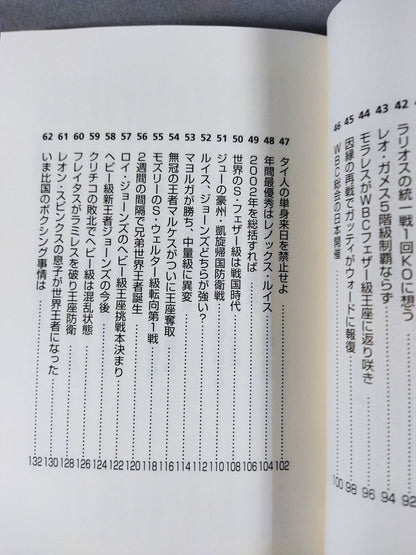 42 ラリオスの統一戦1回KOに想う……92
43 レオ・ガメス5階級制覇ならず……94
44 モラレスがWBCフェザー級王座に返り咲き……96
45 因縁の再戦でガッティがウォードに報復……98
46 WBC総会の日本開催……100
47 タイ人の単身来日を禁止せよ……102
48 年間最優秀はレノックス・ルイス……104
49 2002年を総括すれば……106
50 世界のS・フェザー級は戦国時代……108
51 ジューの豪州・凱旋帰国防衛戦……110
52 ルイス、ジョーンズどちらが強い?……112
53 マヨルガが勝ち、中量級に異変……114
54 無冠の王者マルケスがついに王座奪取……116
55 モズリーのS・ウェルター級転向第1戦……118
56 2週間の間隔で兄弟世界王者誕生……120
57 ロイ・ジョーンズのヘビー級王座挑戦本決まり……122
58 ヘビー級新王者ジョーンズの今後……124
59 クリチコの敗北でヘビー級は混乱状態……126
60 フレイタスがラミレスを破り王座防衛……128
61 レオン・スピンクスの息子が世界王者になった……130
62 いま比国のボクシング事情は……132